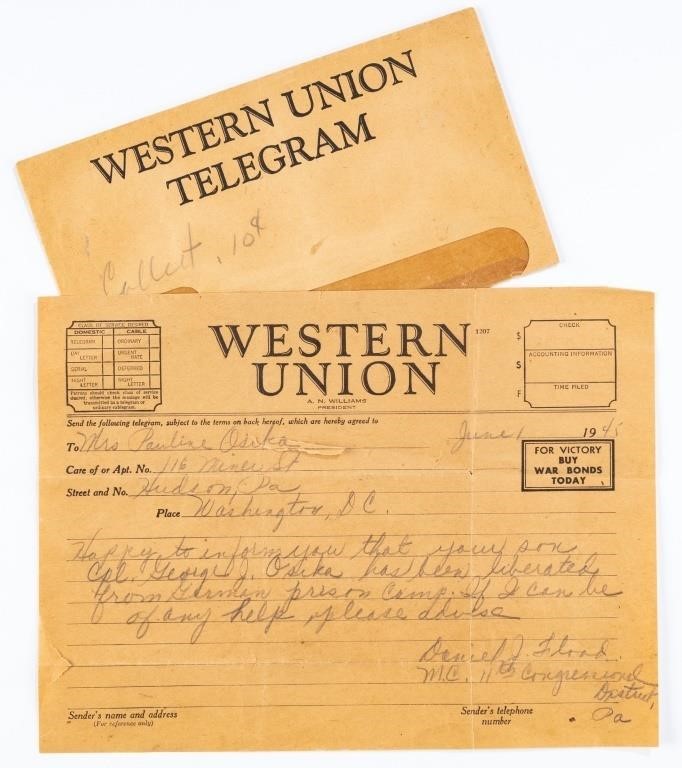 WESTERN UNION
TELEGRAM
Collect, 10¢
CLASS OF SERVICE DESIRED
DOMESTIC CABLE
TELEGRAM ORDINARY
DAY LETTER URGENT RATE
SERIAL DEFERRED
NIGHT LETTER NIGHT LETTER
Patrons should check class of service
desired; otherwise the message will be
transmitted as a telegram or
ordinary cablegram.
WESTERN
UNION
1207
A. N. WILLIAMS
PRESIDENT
$
$
F
CHECK
ACCOUNTING INFORMATION
TIME FILED
Send the following telegram, subject to the terms on back hereof, which are hereby agreed to
To Mrs Pauline Osika June 1 1945
Care of or Apt. No. 116 Miner St
Street and No. Hudson, Pa
Place Washington, D.C.
FOR VICTORY
BUY
WAR BONDS
TODAY
Happy to inform you that your son
Cpl. George J. Osika has been liberated
from German prison camp. If I can be
of any help, please advise
Daniel J. Flood
M.C. 11th Congressional
District,
Pa
Sender's name and address
(For reference only)
Sender's telephone
number